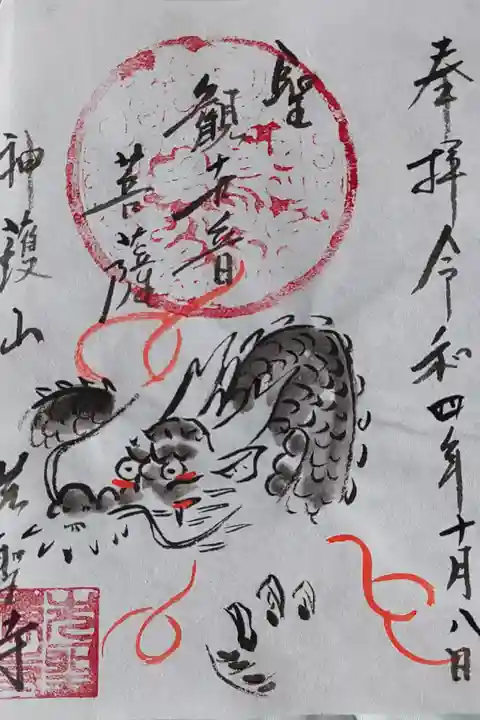 奉拝令和四年十月八日
聖
観世音
菩薩
神護山
先聖寺